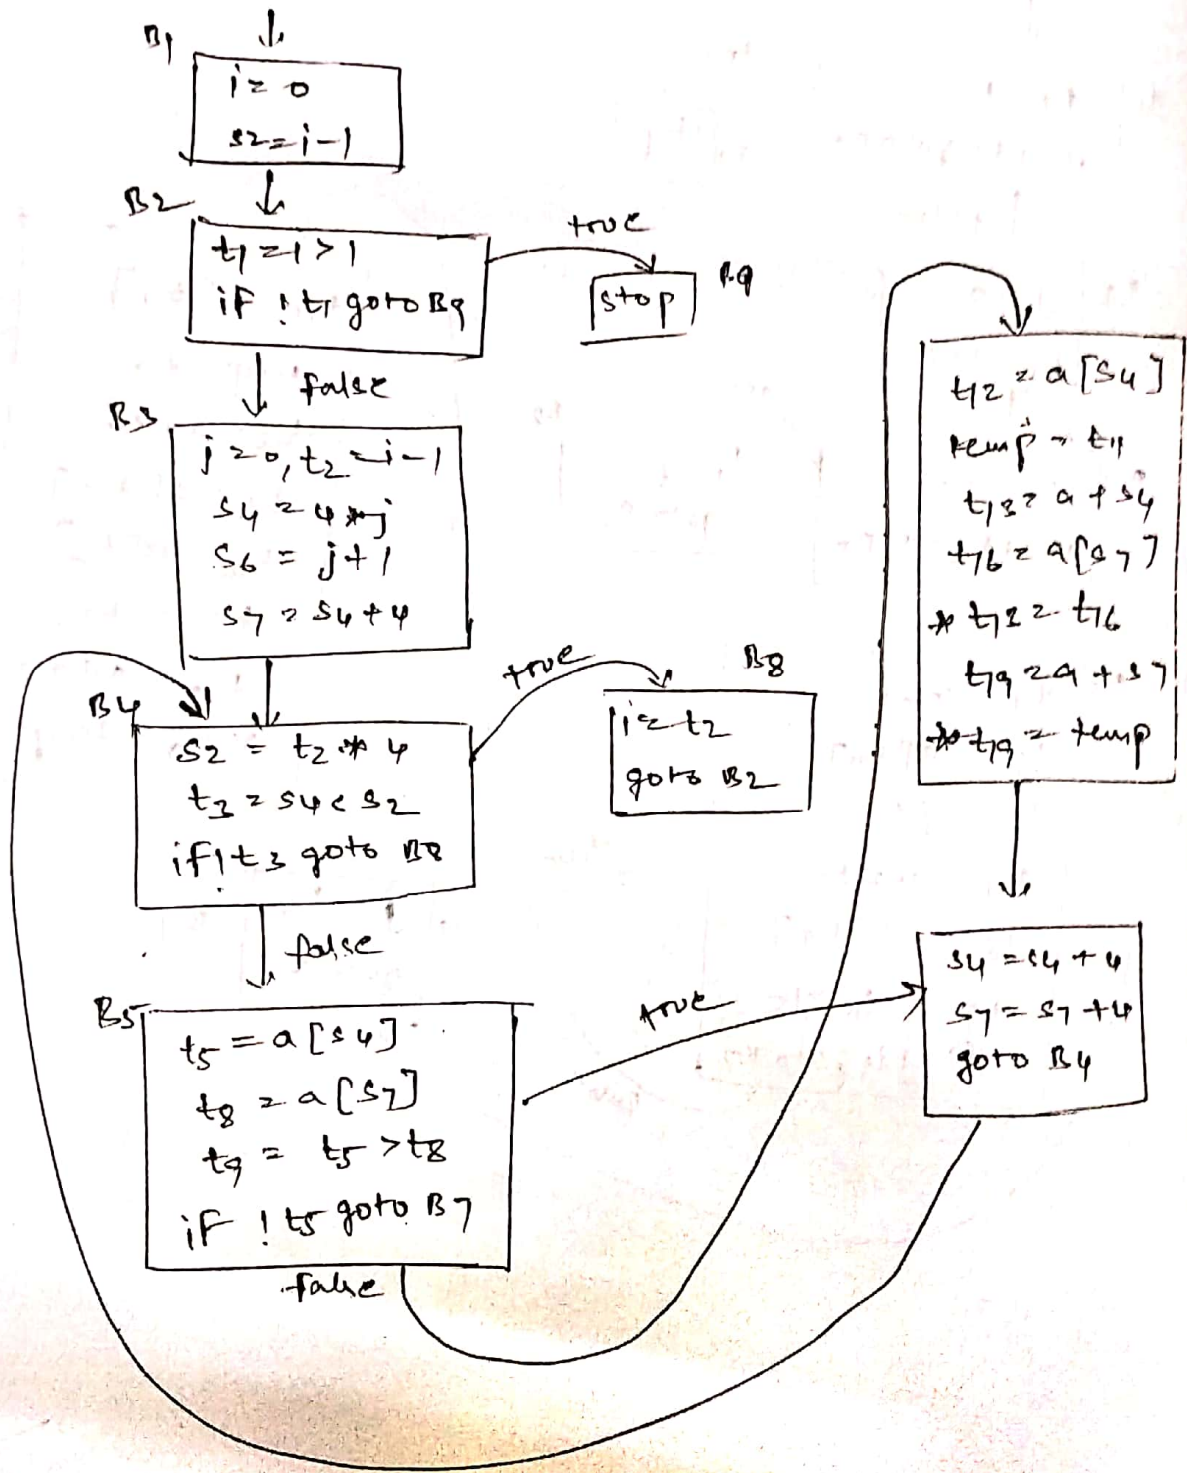 B1
i = 0
s2 = i-1
B2
t1 = 1 > 1
if !t1 goto B9
true
stop
B9
false
B3
j = 0, t2 = i-1
s4 = 4 * j
S6 = j+1
s7 = s4+4
B4
s2 = t2 * 4
t3 = s4 < s2
if !t3 goto B8
true
B8
i = t2
goto B2
false
B5
t5 = a[s4]
t8 = a[s7]
t9 = t5 > t8
if !t5 goto B7
true
false
t12 = a[s4]
temp = t11
t13 = a + s4
t16 = a[s7]
* t12 = t16
t19 = a + s7
* t19 = temp
s4 = s4 + 4
s7 = s7 + 4
goto B4